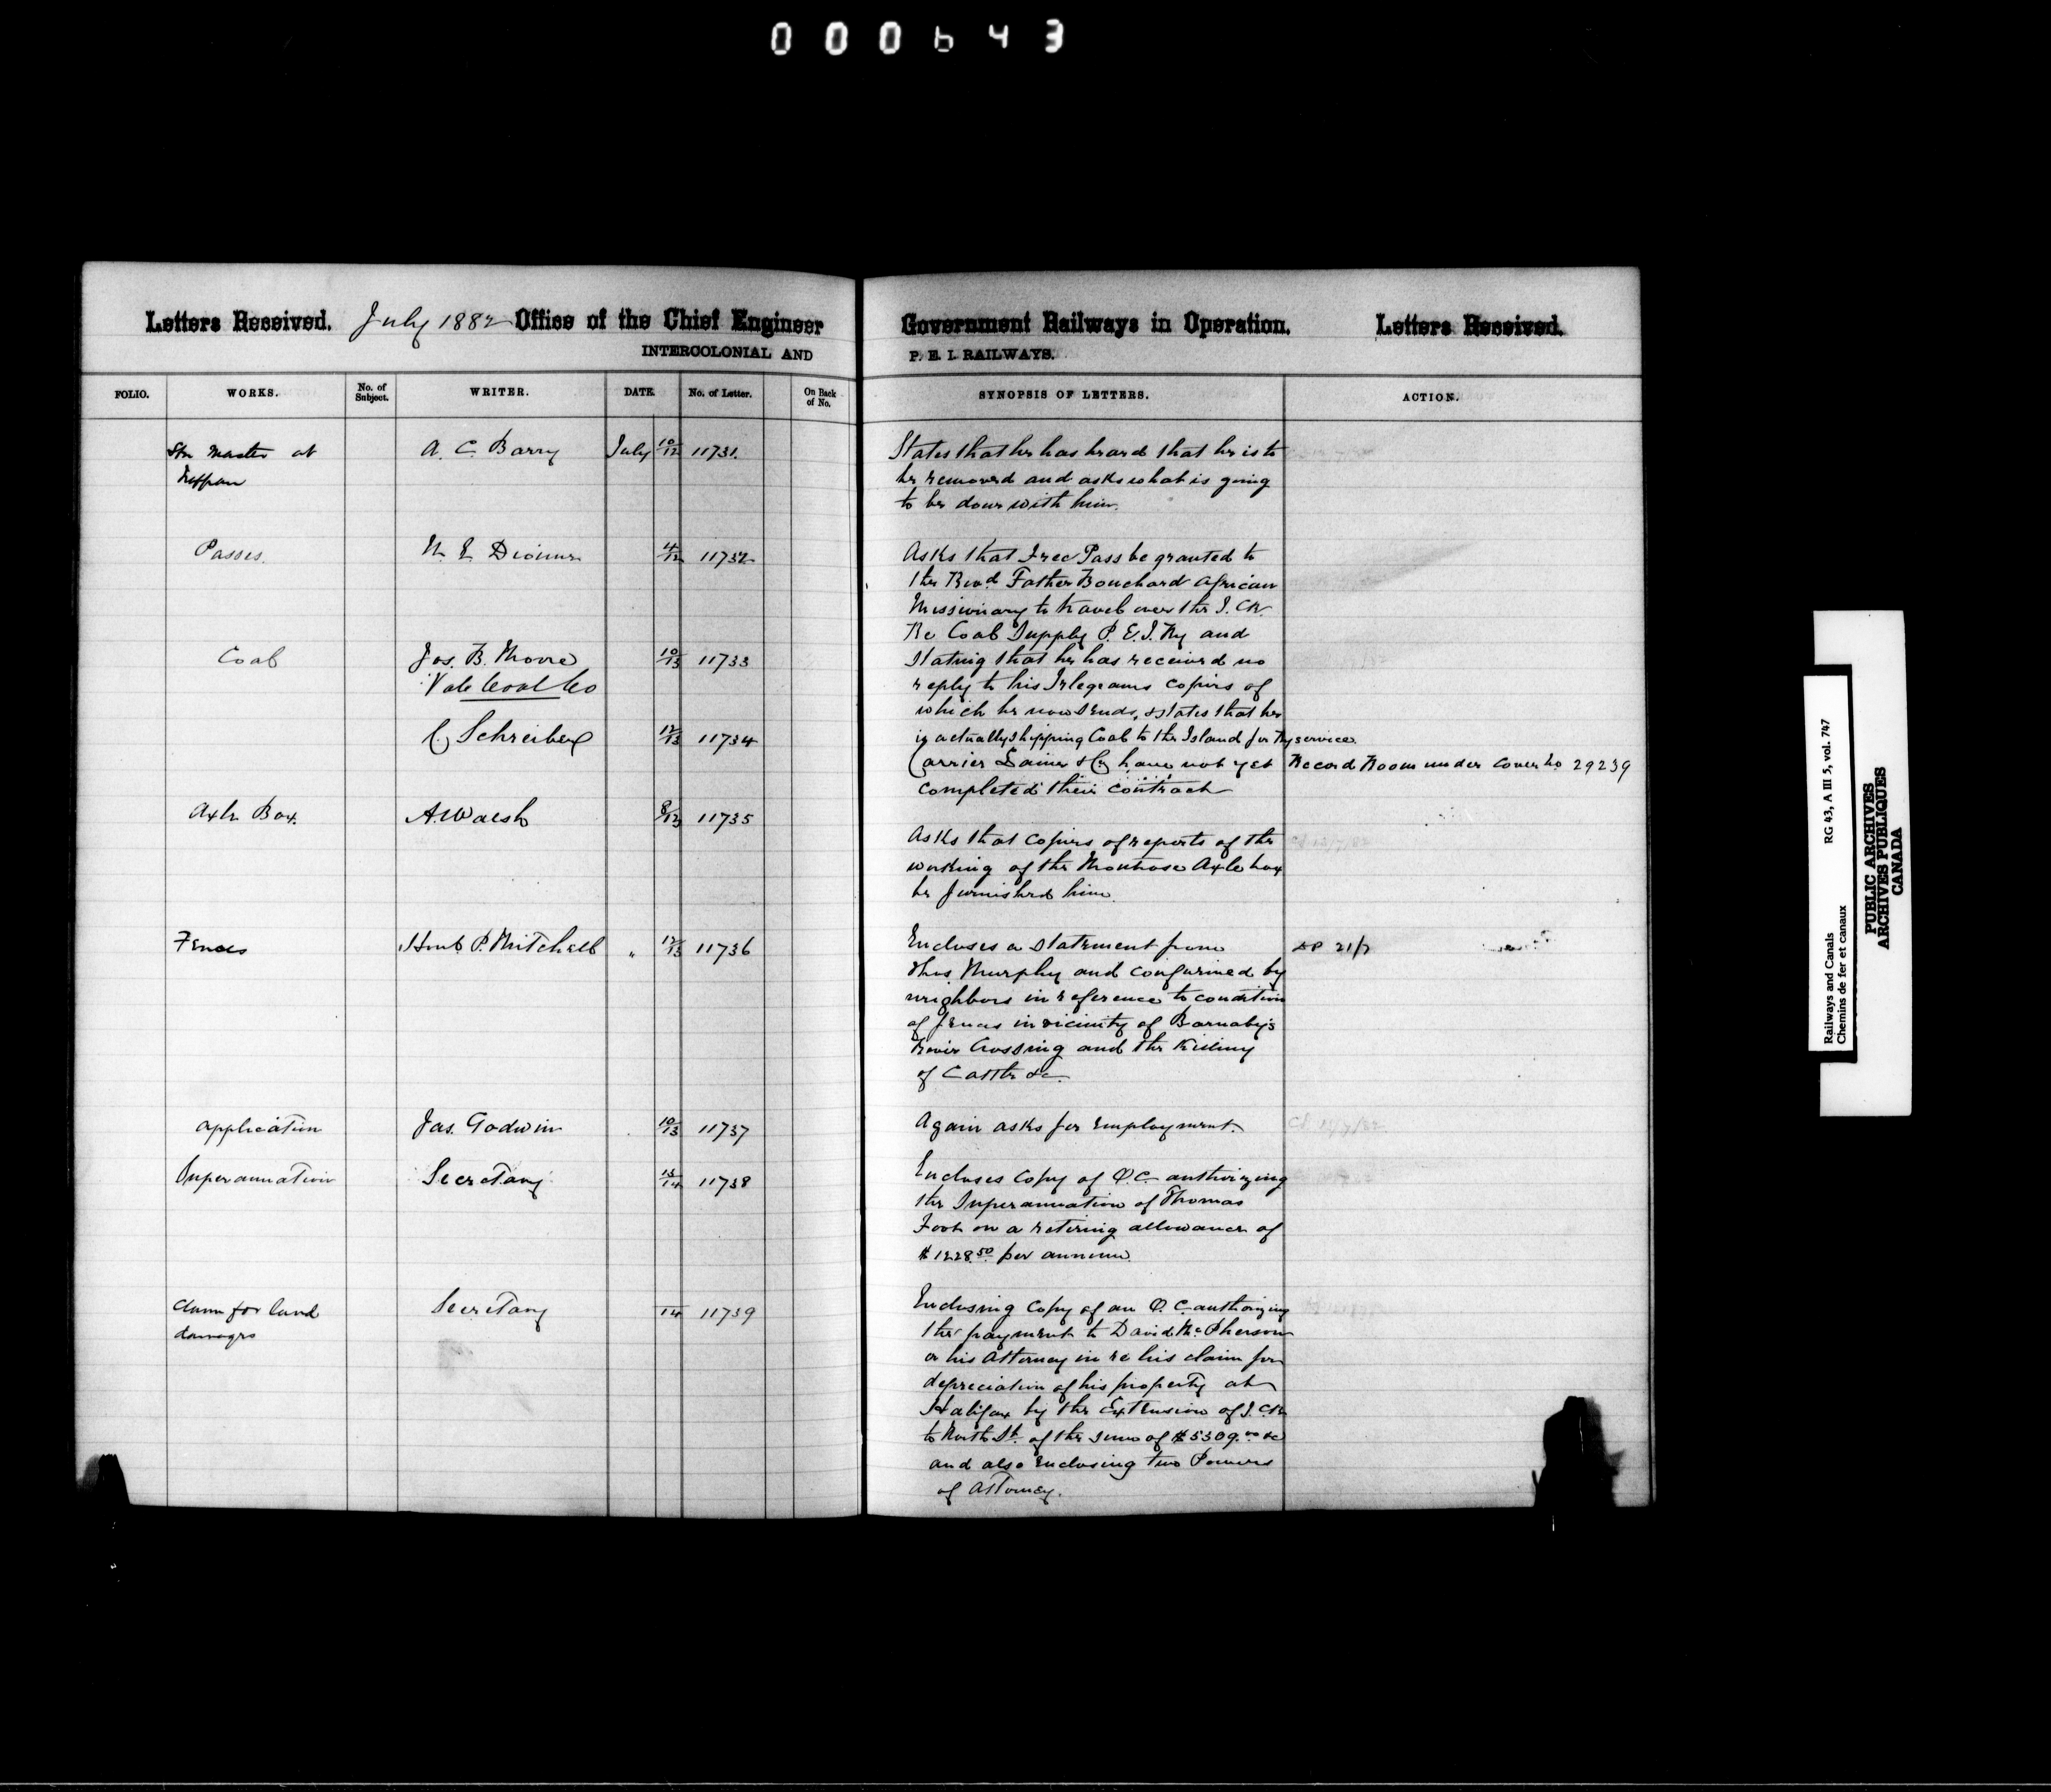 000643
Letters Received. July 1882 Office of the Chief Engineer
INTERCOLONIAL AND
Government Railways in Operation. Letters Received.
P. E. I. RAILWAYS.
FOLIO. WORKS. No. of Subject. WRITER. DATE. No. of Letter. On Back of No. SYNOPSIS OF LETTERS. ACTION.
Stn Master at A. C. Barry July 10/12 11731.
States that he has heard that he is to
be removed and asks what is going
to be done with him.
Passes. N. E. Dionne 4/12 11732
Asks that Free Pass be granted to
the Revd Father Bouchard African
Missionary to travel over the I. C. R.
Coal Jas. B. Moore 10/13 11733
Vale Coal Co
Re Coal Supply P. E. I. Ry and
stating that he has received no
reply to his Telegrams copies of
which he now sends, & states that he
is actually shipping Coal to the Island for Ry service.
C Schreiber 12/13 11734
Carrier Laine & Co have not yet Record Room under cover No. 29239
completed their contract
Axle Box. A. Walsh 8/13 11735
Asks that copies of reports of the
working of the Montrose Axle box
be furnished him.
Fences Honb P. Mitchell " 12/13 11736
Encloses a statement from DP 21/7
Thos Murphy and confirmed by
neighbors in reference to condition
of fences in vicinity of Barnaby's
River Crossing and the killing
of Cattle &c
Application Jas. Godwin 10/13 11737
Again asks for employment.
Superannuation Secretary 13/14 11738
Encloses copy of O.C. authorizing
the Superannuation of Thomas
Foot on a retiring allowance of
$1228.50 per annum
Claim for land Secretary 14 11739
damages
Enclosing copy of an O. C. authorizing
the payment to David McPherson
or his Attorney in re his claim for
depreciation of his property at
Halifax by the Extension of I. C. R
to North St. of the sum of $5309.00 &c
and also enclosing two Powers
of Attorney.
Railways and Canals RG 43, A III 5, vol. 747
Chemins de fer et canaux
PUBLIC ARCHIVES
ARCHIVES PUBLIQUES
CANADA